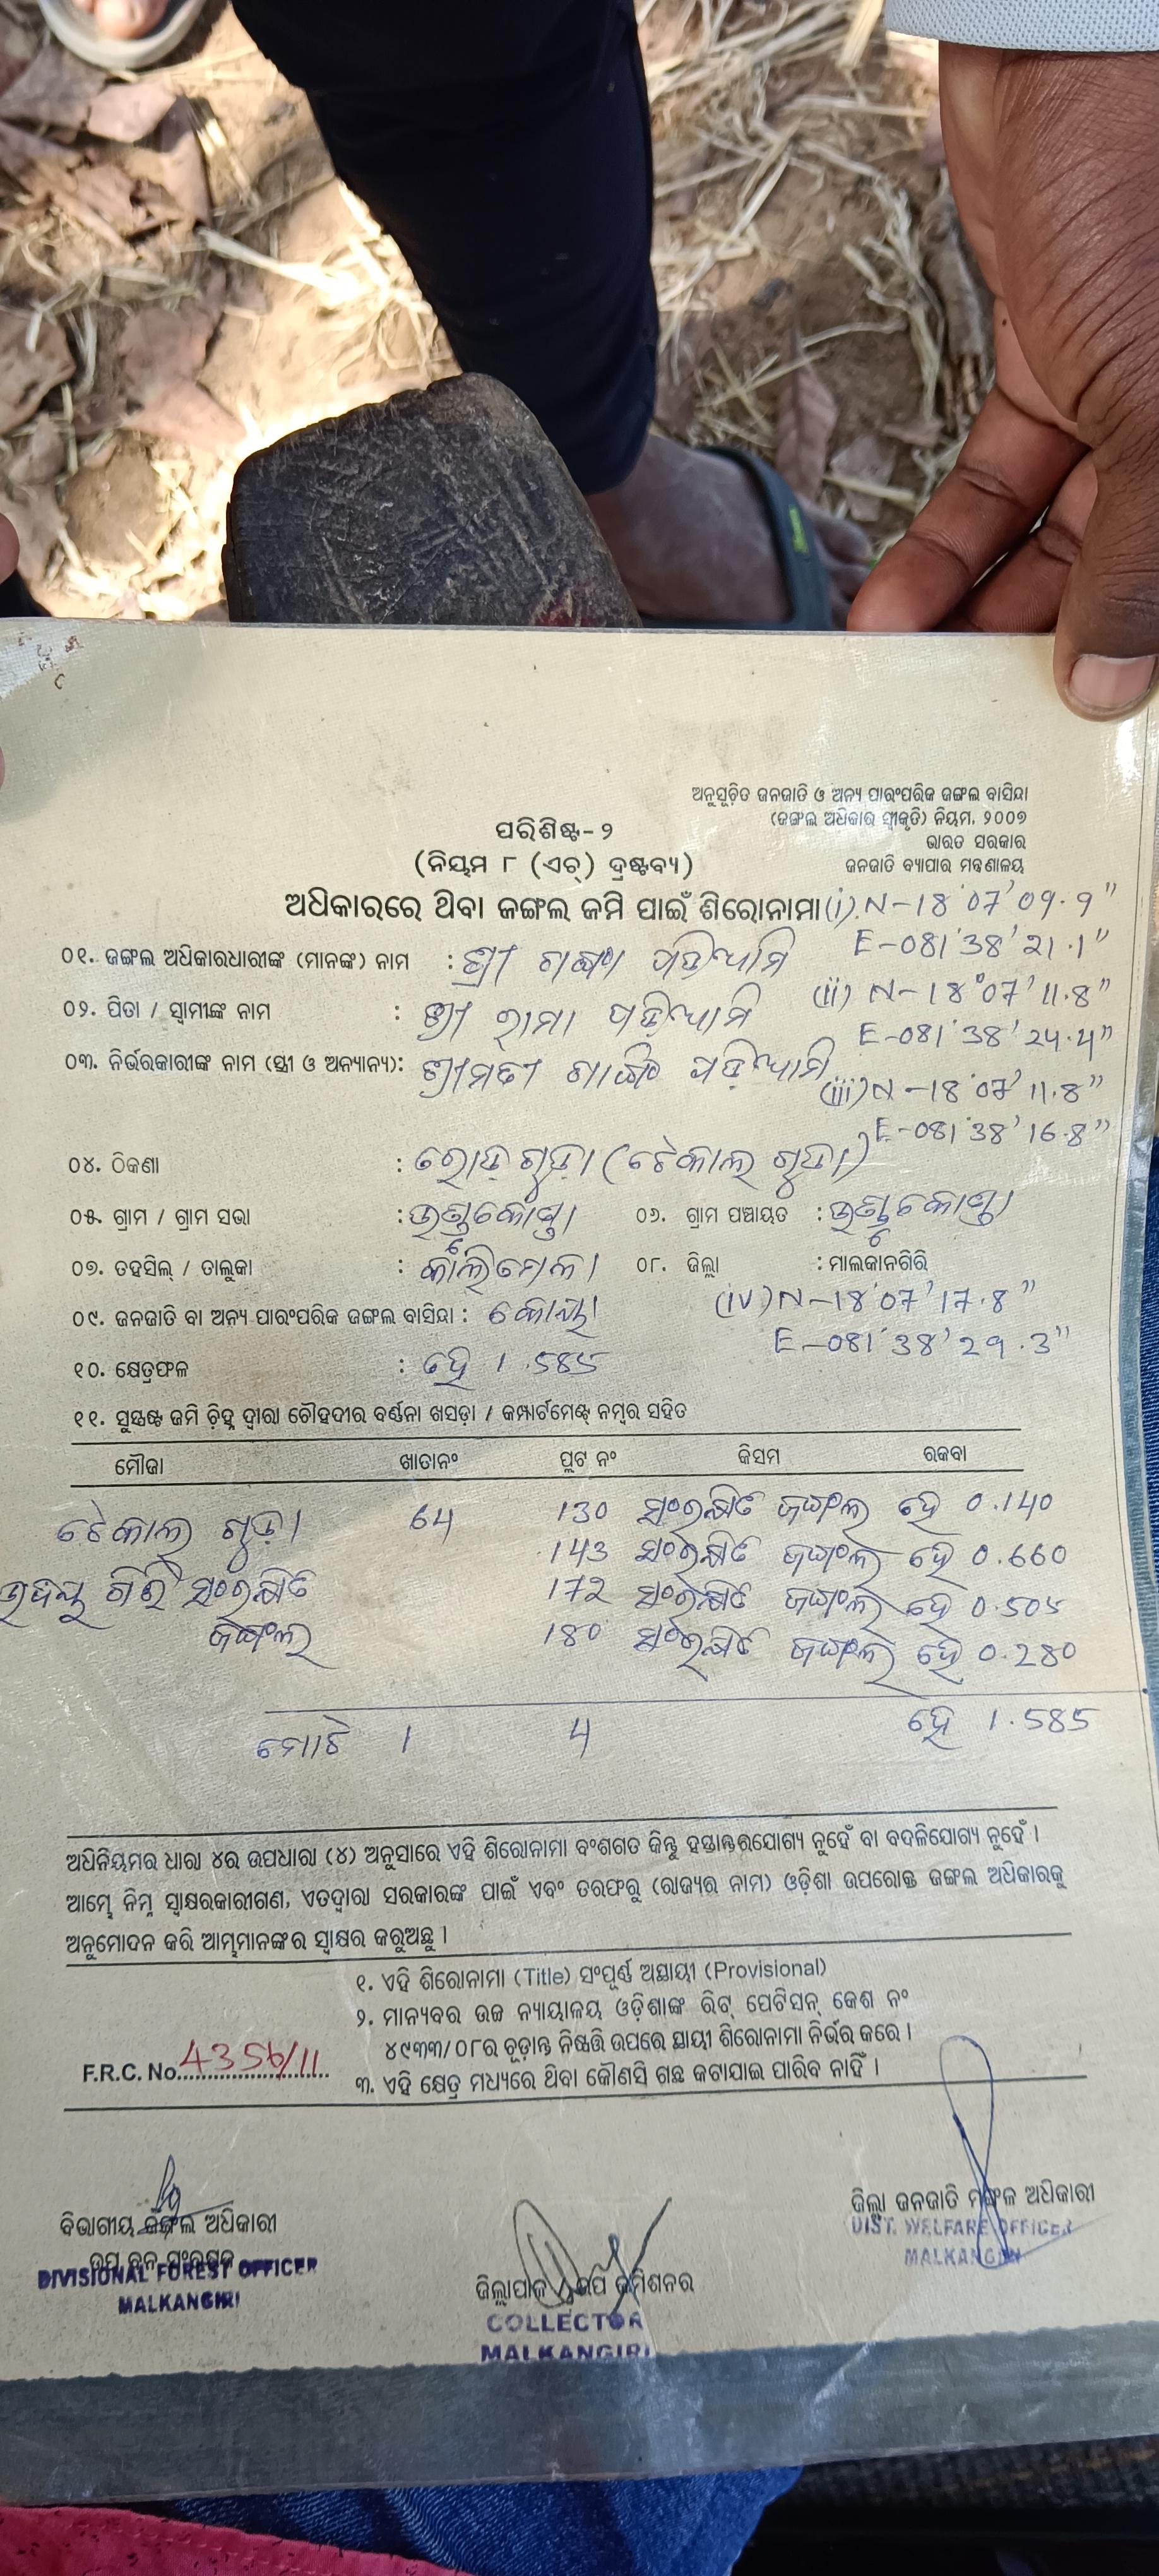 ଅନୁସୂଚିତ ଜନଜାତି ଓ ଅନ୍ୟ ପାରଂପରିକ ଜଙ୍ଗଲ ବାସିନ୍ଦା
(ଜଙ୍ଗଲ ଅଧିକାର ସ୍ୱୀକୃତି) ନିୟମ, ୨୦୦୭
ଭାରତ ସରକାର
ଜନଜାତି ବ୍ୟାପାର ମନ୍ତ୍ରଣାଳୟ
ପରିଶିଷ୍ଟ-୨
(ନିୟମ ୮ (ଏଚ୍) ଦ୍ରଷ୍ଟବ୍ୟ)
ଅଧିକାରରେ ଥିବା ଜଙ୍ଗଲ ଜମି ପାଇଁ ଶିରୋନାମା (i) N-18°07'09.9"
E-081°38'21.1"
୦୧. ଜଙ୍ଗଲ ଅଧିକାରଧାରୀଙ୍କ (ମାନଙ୍କ) ନାମ : ଶ୍ରୀ ଗଙ୍ଗା ପଡ଼ିଆମି
(ii) N-18°07'11.8"
୦୨. ପିତା / ସ୍ୱାମୀଙ୍କ ନାମ : ଶ୍ରୀ ରାମା ପଡ଼ିଆମି
E-081°38'24.4"
୦୩. ନିର୍ଭରକାରୀଙ୍କ ନାମ (ସ୍ତ୍ରୀ ଓ ଅନ୍ୟାନ୍ୟ): ଶ୍ରୀମତୀ ପଡ଼ିଆମି
(iii) N-18°07'11.8"
E-081°38'16.8"
୦୪. ଠିକଣା : ରୋଡ୍ ଗୁଡ଼ା (ଟେକାଲ ଗୁଡା)
୦୫. ଗ୍ରାମ / ଗ୍ରାମ ସଭା : ୦୬. ଗ୍ରାମ ପଞ୍ଚାୟତ :
୦୭. ତହସିଲ୍ / ତାଲୁକା : କାଲିମେଳା ୦୮. ଜିଲ୍ଲା : ମାଲକାନଗିରି
୦୯. ଜନଜାତି ବା ଅନ୍ୟ ପାରଂପରିକ ଜଙ୍ଗଲ ବାସିନ୍ଦା : କୋୟା (iv) N-18°07'17.8"
E-081°38'29.3"
୧୦. କ୍ଷେତ୍ରଫଳ : ହେ 1.585
୧୧. ସୁସ୍ପଷ୍ଟ ଜମି ଚିହ୍ନ ଦ୍ୱାରା ଚୌହଦୀର ବର୍ଣ୍ଣନା ଖସଡ଼ା / କମ୍ପାର୍ଟମେଣ୍ଟ୍ ନମ୍ବର ସହିତ
ମୌଜା ଖାତାନଂ ପ୍ଲଟ ନଂ କିସମ ରକବା
ଟେକାଲ୍ ଗୁଡ଼ା 64 130 ସଂରକ୍ଷିତ ଜଙ୍ଗଲ ହେ 0.140
143 ସଂରକ୍ଷିତ ଜଙ୍ଗଲ ହେ 0.660
ଉଦୟ ଗିରି ସଂରକ୍ଷିତ 172 ସଂରକ୍ଷିତ ଜଙ୍ଗଲ ହେ 0.505
ଜଙ୍ଗଲ 180 ସଂରକ୍ଷିତ ଜଙ୍ଗଲ ହେ 0.280
ମୋଟ 1 4 ହେ 1.585
ଅଧିନିୟମର ଧାରା ୪ର ଉପଧାରା (୪) ଅନୁସାରେ ଏହି ଶିରୋନାମା ବଂଶଗତ କିନ୍ତୁ ହସ୍ତାନ୍ତରଯୋଗ୍ୟ ନୁହେଁ ବା ବଦଳିଯୋଗ୍ୟ ନୁହେଁ ।
ଆମ୍ଭେ ନିମ୍ନ ସ୍ୱାକ୍ଷରକାରୀଗଣ, ଏତଦ୍ୱାରା ସରକାରଙ୍କ ପାଇଁ ଏବଂ ତରଫରୁ (ରାଜ୍ୟର ନାମ) ଓଡ଼ିଶା ଉପରୋକ୍ତ ଜଙ୍ଗଲ ଅଧିକାରକୁ
ଅନୁମୋଦନ କରି ଆମ୍ଭମାନଙ୍କର ସ୍ୱାକ୍ଷର କରୁଅଛୁ ।
୧. ଏହି ଶିରୋନାମା (Title) ସଂପୂର୍ଣ୍ଣ ଅସ୍ଥାୟୀ (Provisional)
୨. ମାନ୍ୟବର ଉଚ୍ଚ ନ୍ୟାୟାଳୟ ଓଡ଼ିଶାଙ୍କ ରିଟ୍ ପେଟିସନ୍ କେଶ ନଂ
୪୯୩୩/୦୮ର ଚୂଡ଼ାନ୍ତ ନିଷ୍ପତ୍ତି ଉପରେ ସ୍ଥାୟୀ ଶିରୋନାମା ନିର୍ଭର କରେ ।
F.R.C. No. 4356/11
୩. ଏହି କ୍ଷେତ୍ର ମଧ୍ୟରେ ଥିବା କୌଣସି ଗଛ କଟାଯାଇ ପାରିବ ନାହିଁ ।
ବିଭାଗୀୟ ଜଙ୍ଗଲ ଅଧିକାରୀ
ଉପ ବନ ସଂରକ୍ଷକ
DIVISIONAL FOREST OFFICER
MALKANGIRI
ଜିଲ୍ଲାପାଳ / ଉପ କମିଶନର
COLLECTOR
MALKANGIRI
ଜିଲ୍ଲା ଜନଜାତି ମଙ୍ଗଳ ଅଧିକାରୀ
DIST. WELFARE OFFICER
MALKANGIRI